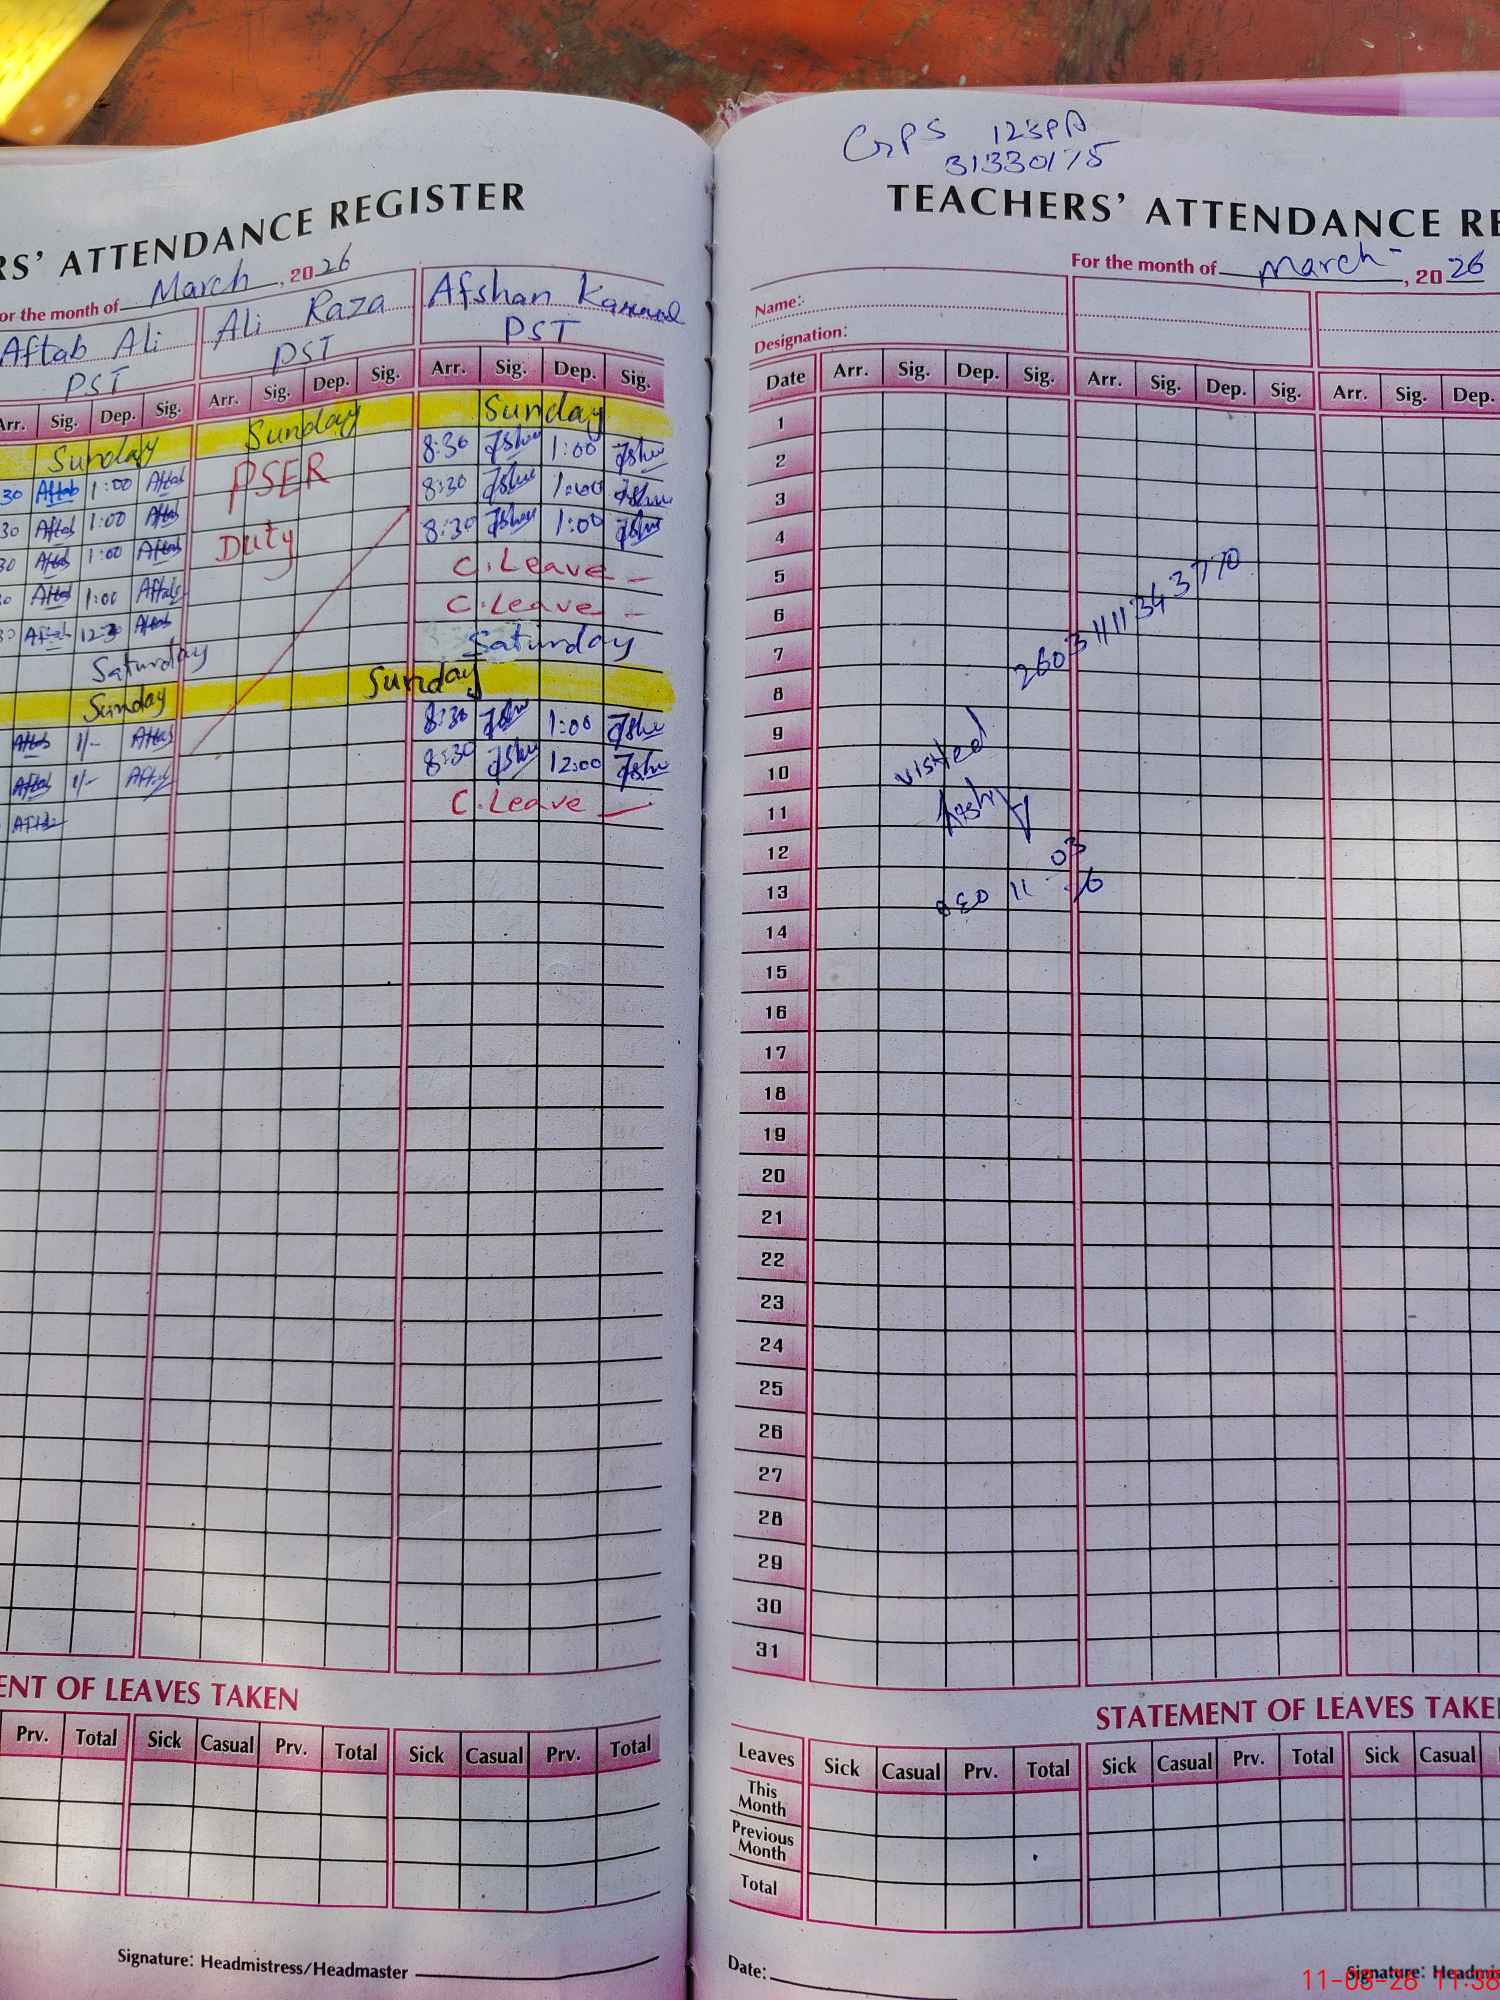 RS' ATTENDANCE REGISTER
or the month of March, 2026
Aftab Ali Ali Raza Afshan
PST PST PST
Arr. Sig. Dep. Sig. Arr. Sig. Dep. Sig. Arr. Sig. Dep. Sig.
Sunday Sunday Sunday
30 Aftab 1:00 Aftab PSER 8:30 1:00
30 Aftab 1:00 Aftab 8:30 1:00
30 Aftab 1:00 Aftab Duty 8:30 1:00
30 Aftab 1:00 Aftab C.Leave
30 Aftab Aftab C.Leave
Saturday Saturday
Sunday Sunday
Aftab 1/- Aftab 8:30 1:00
Aftab 1/- Aftab 8:30 12:00
Aftab C.Leave
ENT OF LEAVES TAKEN
Prv. Total Sick Casual Prv. Total Sick Casual Prv. Total
Signature: Headmistress/Headmaster
GPS 123PA
31330175
TEACHERS' ATTENDANCE RE
For the month of March, 2026
Name:
Designation:
Date Arr. Sig. Dep. Sig. Arr. Sig. Dep. Sig. Arr. Sig. Dep.
1
2
3
4
5
6
26031111343770
7
8
9
visited
10
11
12
13
11 03 26
14
15
16
17
18
19
20
21
22
23
24
25
26
27
28
29
30
31
STATEMENT OF LEAVES TAKE
Leaves Sick Casual Prv. Total Sick Casual Prv. Total Sick Casual
This Month
Previous Month
Total
Date:
Signature: Headmis
11-03-26 11:38